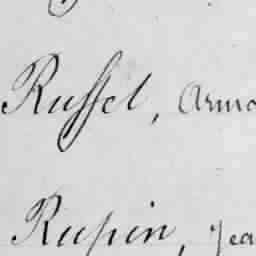 Russel, Arma
Rupin, Jea